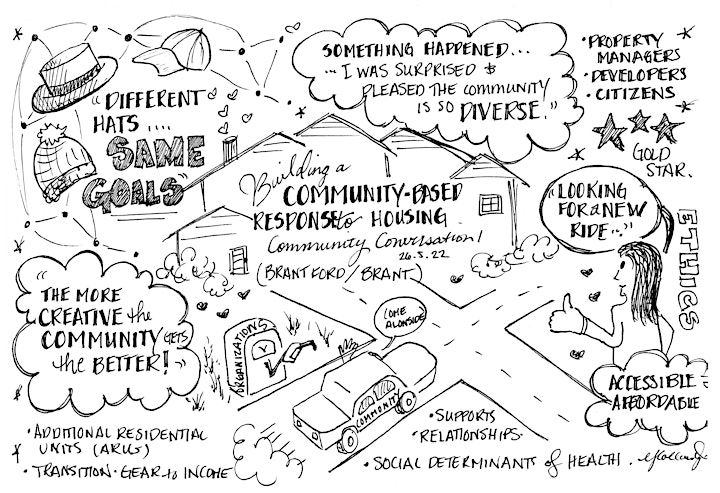 "DIFFERENT
HATS ....
SAME
GOALS"
SOMETHING HAPPENED...
... I WAS SURPRISED &
PLEASED THE COMMUNITY
IS SO DIVERSE."
• PROPERTY
MANAGERS
• DEVELOPERS
• CITIZENS
GOLD
STAR.
Building a
COMMUNITY-BASED
RESPONSE to HOUSING
Community Conversation!
26.5.22
(BRANTFORD/BRANT)
"LOOKING
FOR a NEW
RIDE..."
ETHICS
"THE MORE
CREATIVE the
COMMUNITY GETS
the BETTER!"
ORGANIZATIONS
COME
ALONGSIDE
COMMUNITY
ACCESSIBLE
AFFORDABLE
• ADDITIONAL RESIDENTIAL
UNITS (ARUs)
• TRANSITION • GEAR to INCOME
• SUPPORTS
RELATIONSHIPS •
• SOCIAL DETERMINANTS of HEALTH.